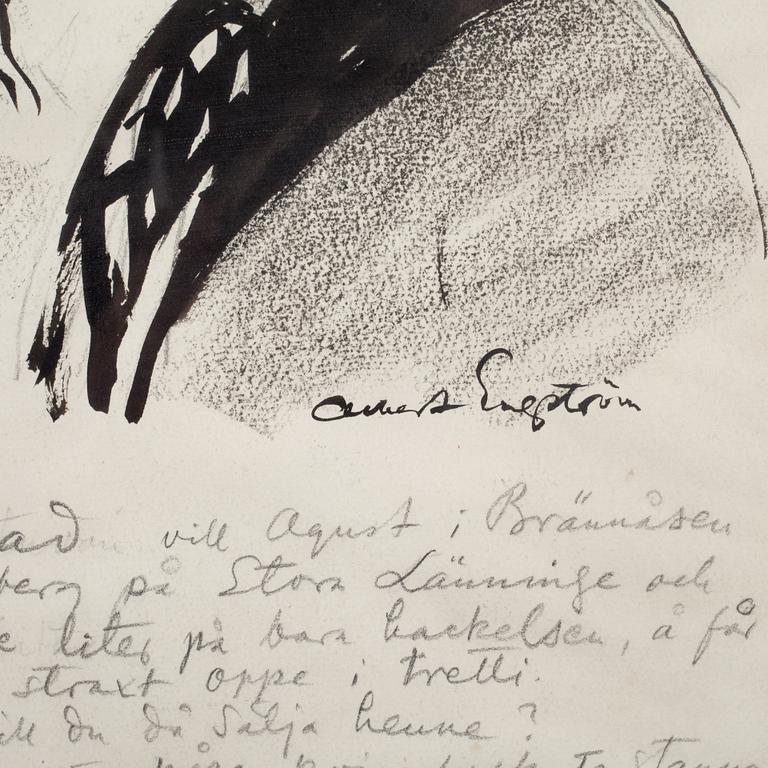 Albert Engström
vill Agust i Brännåsen
på Stora Länninge och
liter på bara hackelsen, å får
straxt oppe i tretti.
du då sälja henne ?